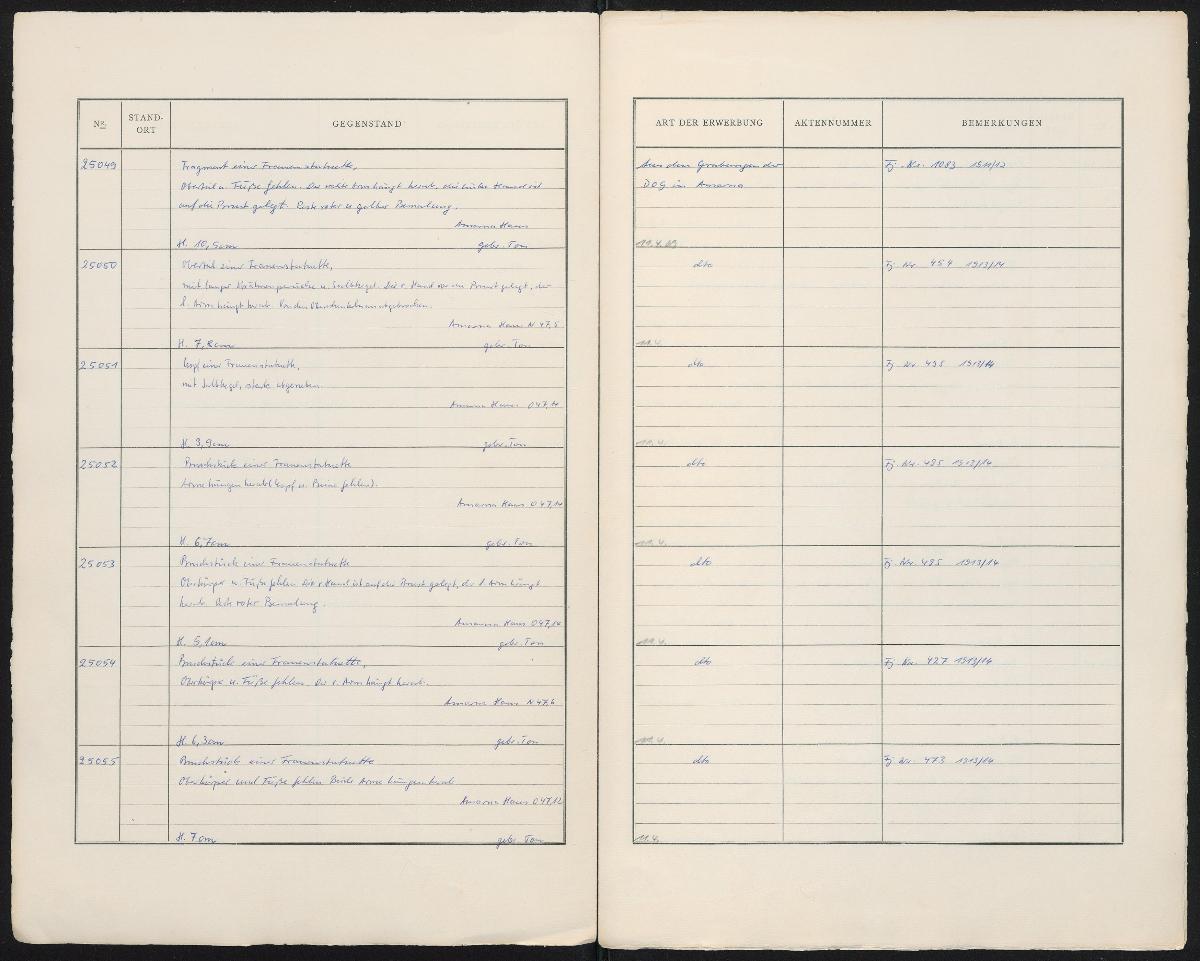 Nr.
STAND-
ORT
GEGENSTAND
ART DER ERWERBUNG
AKTENNUMMER
BEMERKUNGEN
25049
Fragment einer Frauenstatuette,
Oberteil u. Füße fehlen. Der rechte Arm hängt herab, die linke Hand ist
auf die Brust gelegt. Reste roter u. gelber Bemalung.
Amarna Haus
H. 10,5cm gebr. Ton
Aus den Grabungen der
DOG in Amarna
Fj. Nr. 1083 1911/12
25050
Oberteil einer Frauenstatuette,
mit langer Strähnenperücke u. Salbkegel. Die r. Hand vor die Brust gelegt, der
l. Arm hängt herab. Von den Oberschenkeln an abgebrochen.
Amarna Haus N 47,5
H. 7,8cm gebr. Ton
dto
Fj. Nr. 454 1913/14
11.4.
25051
Kopf einer Frauenstatuette,
mit Salbkegel, stark abgerieben.
Amarna Haus O 47,14
H. 3,9cm gebr. Ton
dto
Fj. Nr. 495 1913/14
11.4.
25052
Bruchstück einer Frauenstatuette
Arme hängen herab (Kopf u. Beine fehlen).
Amarna Haus O 47,14
H. 6,7cm gebr. Ton
dto
Fj. Nr. 495 1913/14
11.4.
25053
Bruchstück einer Frauenstatuette
Oberkörper u. Füße fehlen. Die r. Hand ist auf die Brust gelegt, der l. Arm hängt
herab. Reste roter Bemalung.
Amarna Haus O 47,14
H. 5,1cm gebr. Ton
dto
Fj. Nr. 495 1913/14
11.4.
25054
Bruchstück einer Frauenstatuette,
Oberkörper u. Füße fehlen. Der r. Arm hängt herab.
Amarna Haus N 47,6
H. 6,3cm gebr. Ton
dto
Fj. Nr. 427 1913/14
11.4.
25055
Bruchstück einer Frauenstatuette
Oberkörper und Füße fehlen. Beide Arme hängen herab
Amarna Haus O 47,12
H. 7cm gebr. Ton
dto
Fj. Nr. 473 1913/14
11.4.